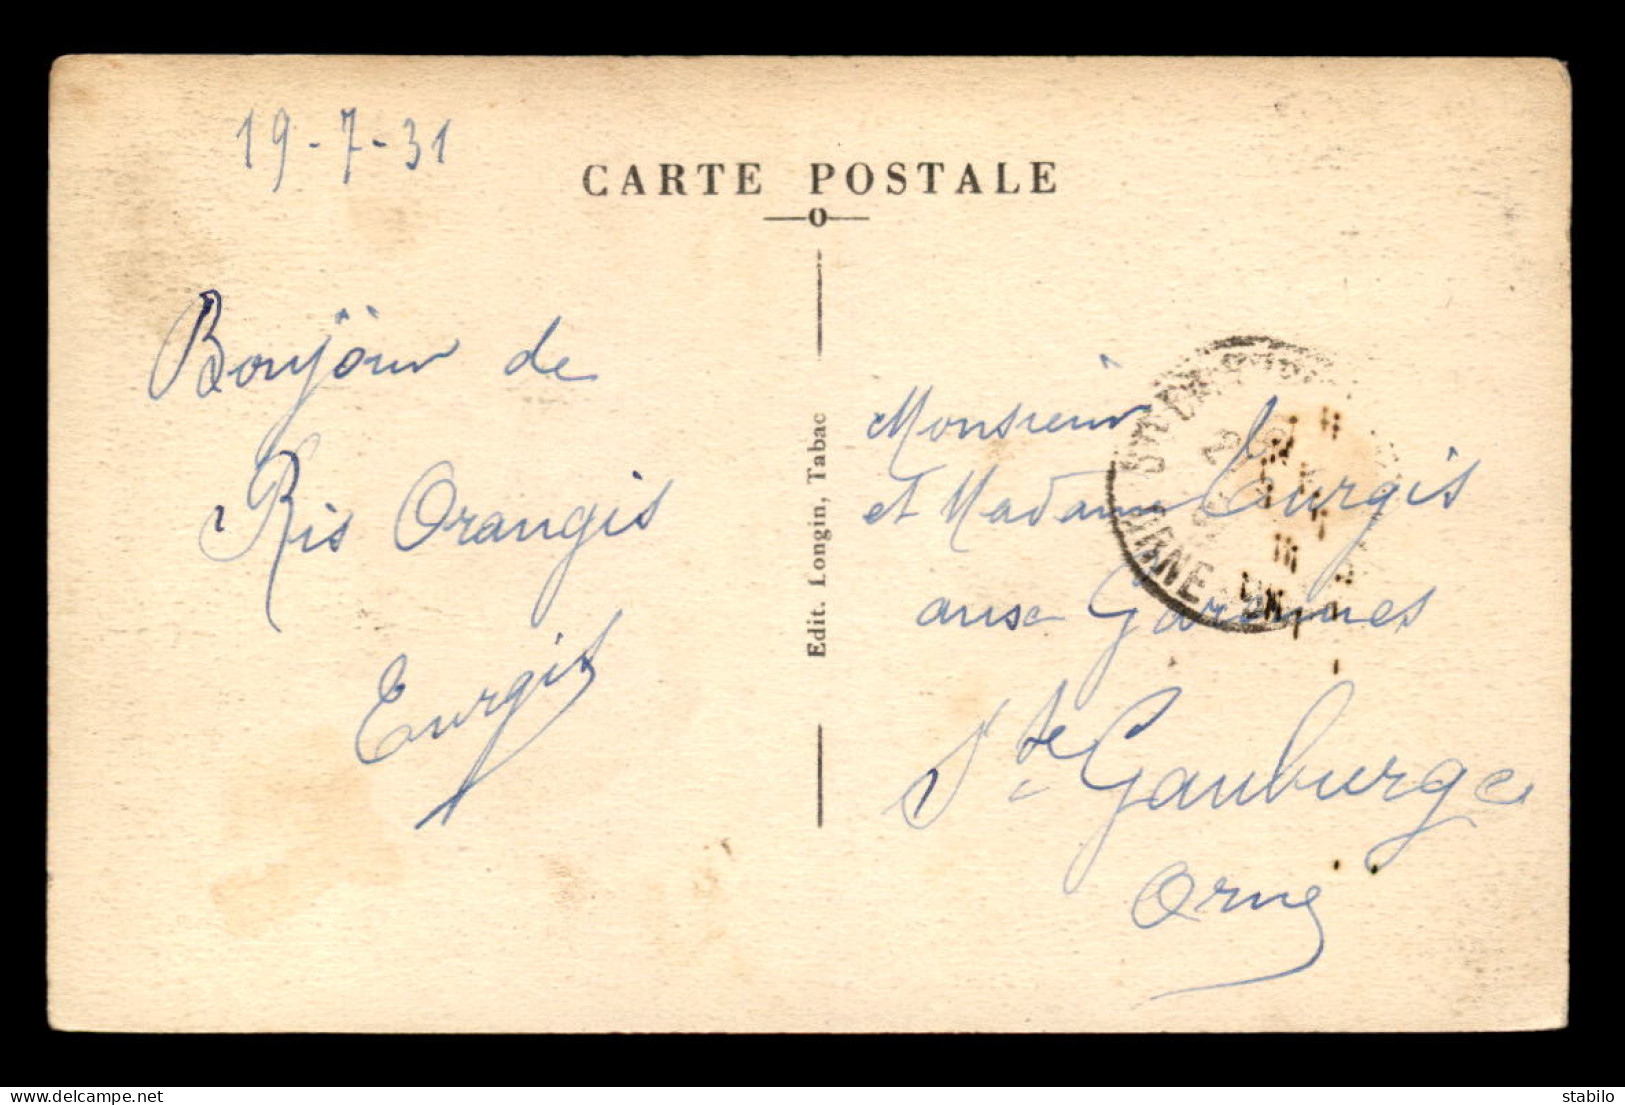 19-7-31
CARTE POSTALE
Bonjour de
Ris Orangis
Eurgis
Edit. Longin, Tabac
Monsieur
et Madame Eurgis
aux Garennes
Ste Gauburge
Orne
ORNE
delcampe.net
stabilo